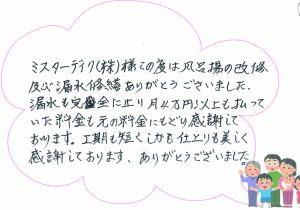 ミスターデイク(株)様この度は風呂場の改修
及び漏水修繕ありがとうございました。
漏水も完全に止り月4万円以上も払って
いた料金も元の料金にもどり感謝して
おります。工期も短くしかも仕上りも美しく
感謝しております、ありがとうございました。